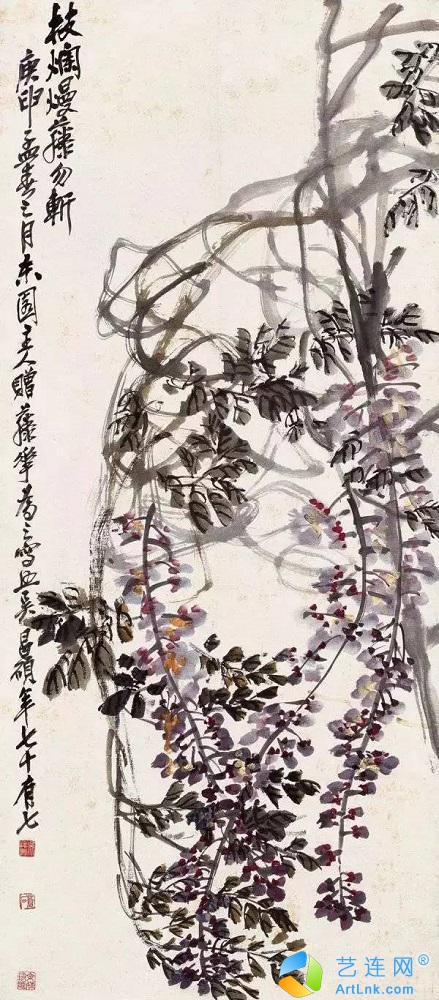 枝爛熳藤勿斬
庚申孟春之月園主人贈藤華為之寫吳昌碩年七十有七
艺连网®
ArtLnk.com